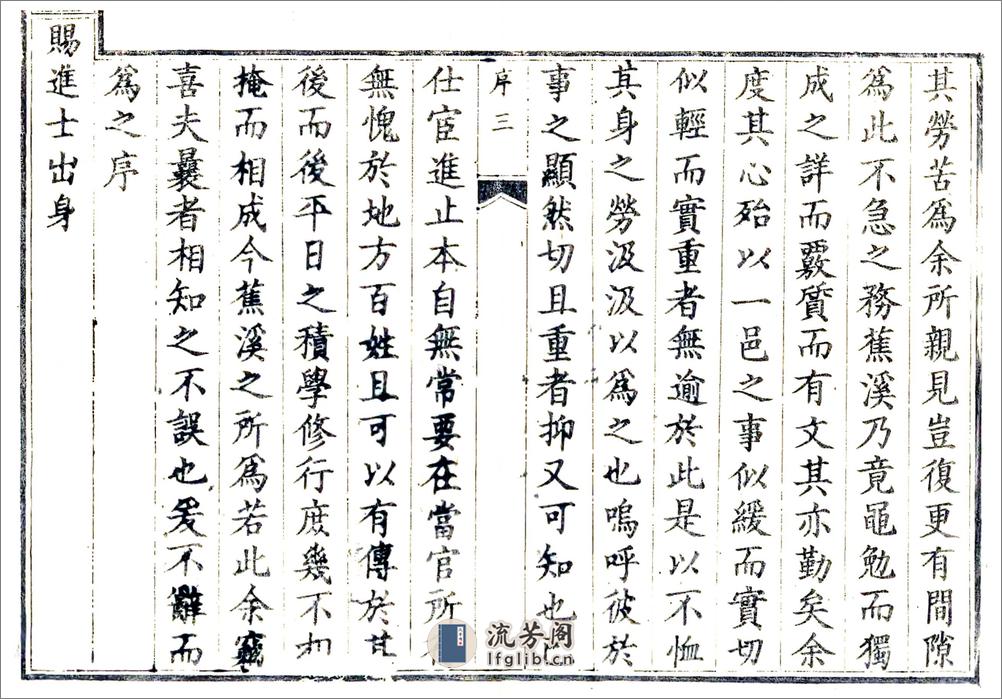 其勞苦爲余所親見豈復更有間隙
爲此不急之務蕉溪乃竟黽勉而獨
成之詳而覈質而有文其亦勤矣余
度其心殆以一邑之事似緩而實切
似輕而實重者無逾於此是以不恤
其身之勞汲汲以爲之也嗚呼彼於
事之顯然切且重者抑又可知也
序 三
仕宦進止本自無常要在當官所
無愧於地方百姓且可以有傳於其
後而後平日之積學修行庶幾不相
掩而相成今蕉溪之所爲若此余竊
喜夫曩者相知之不誤也爰不辭而
爲之序
賜進士出身
流芳阁
lfglib.cn